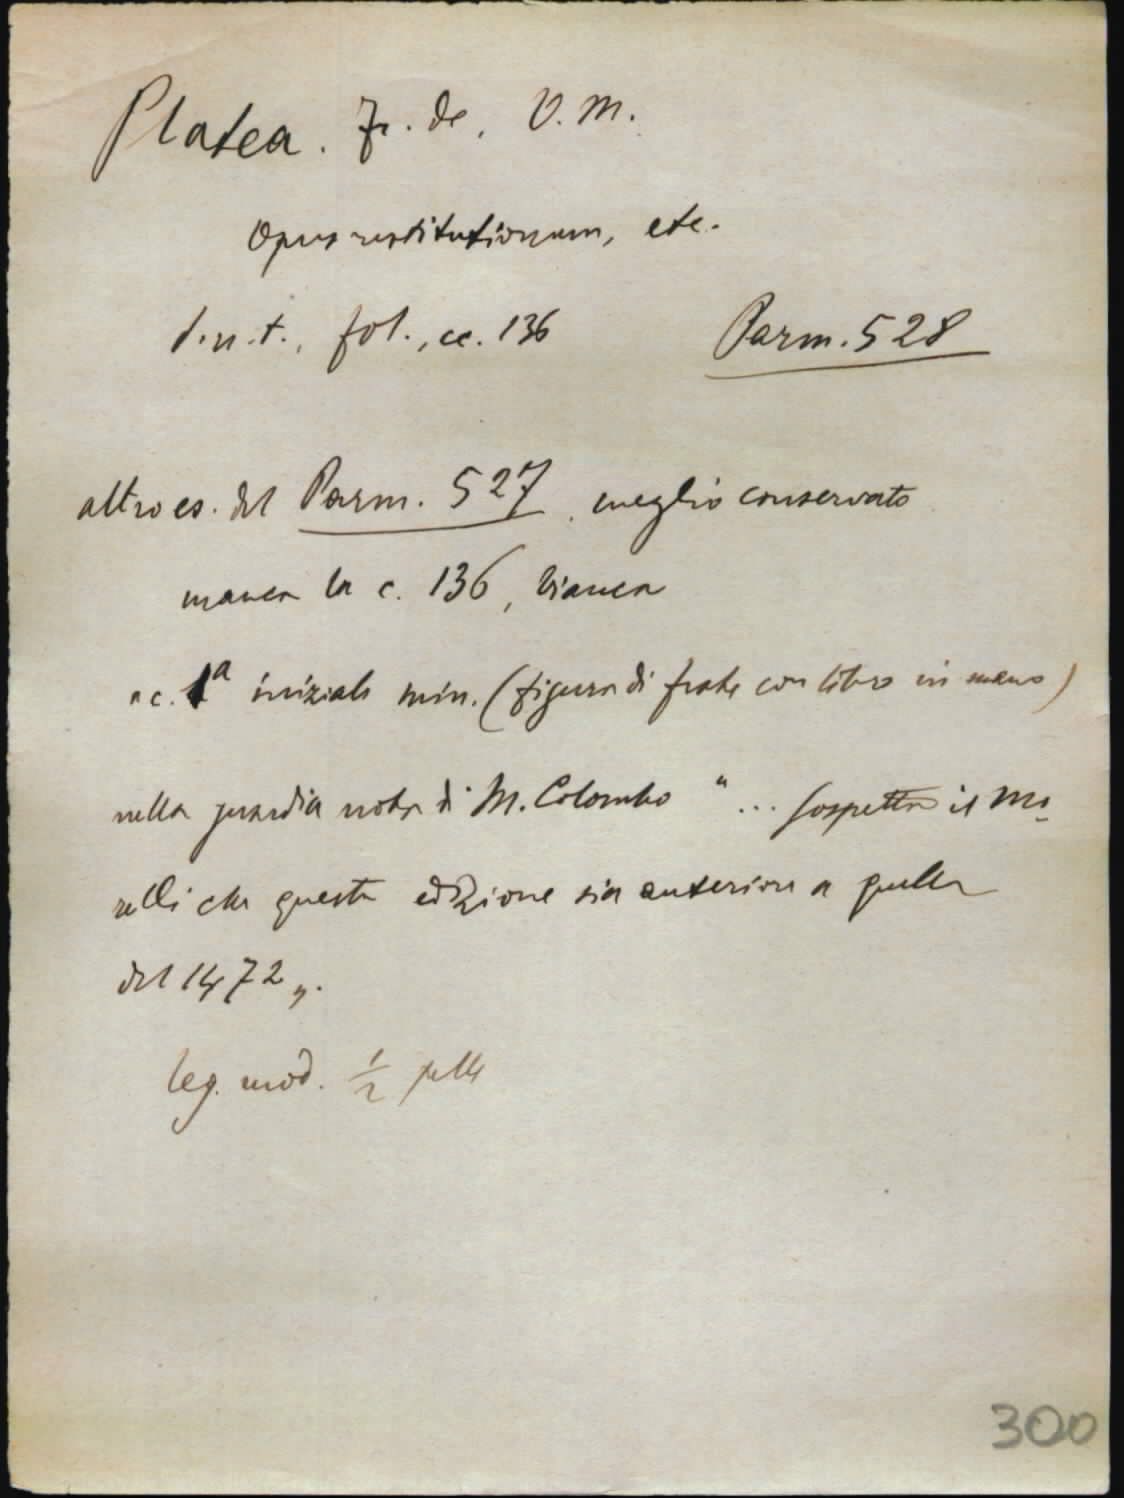 Platea. Fr. de, O. M.
Opus restitutionum, etc.
s.n.t., fol., cc. 136 Parm. 528
altro es. del Parm. 527, meglio conservato
manca la c. 136, bianca
a c. 1a iniziale min. (figura di frate con libro in mano)
nella guardia nota di M. Colombo "... sospetta il Mo-
relli che questa edizione sia anteriore a quella
del 1472".
leg. mod. 1/2 pelle
300